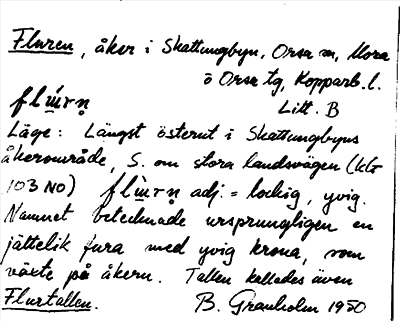 Fluren, åker i Skattungbyn, Orsa sn, Mora
o Orsa tg, Kopparb. l.
Litt. B
Läge: Längst österut i Skattungbyns
åkerområde, S. om stora landsvägen (
103 NO) adj. = lockig, yvig.
Namnet betecknade ursprungligen en
jättelik fura med yvig krona, som
växte på åkern. Tallen kallades även
Flurtallen. B. Granholm 1950